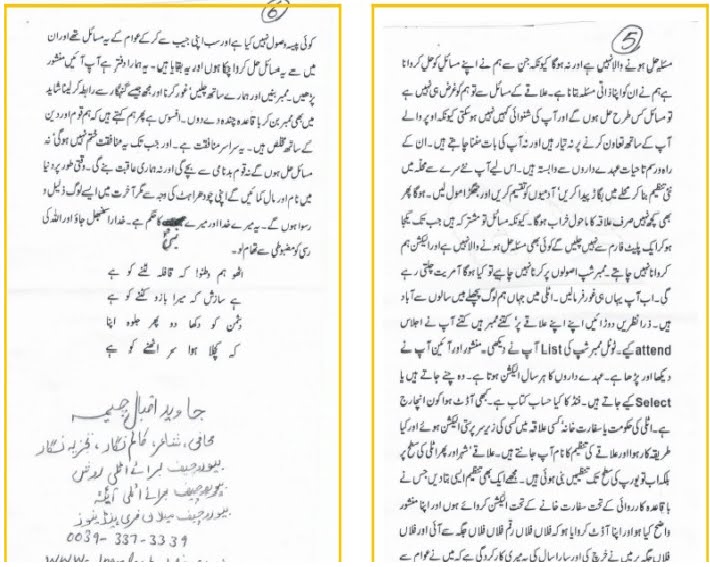 5
مسئلہ حل ہونے والا نہیں ہے اور نہ ہوگا کیونکہ جن سے ہم نے اپنے مسائل کو حل کروانا
ہے ہم نے ان کو اپنا ذاتی مسئلہ بنانا ہے۔ علاقے کے مسائل سے تو ہم کو غرض ہی نہیں ہے
تو مسائل کس طرح حل ہوں گے اور آپ کی شنوائی کہیں نہیں ہوسکتی کیونکہ اوپر والے
آپ کے ساتھ تعاون کرنے پر نہ تیار ہیں اور نہ آپ کی بات سننا چاہتے ہیں۔ ان کے
راہ و رسم تاحیات عہدے داروں سے وابستہ ہیں۔ اس لیے آپ نئے سرے سے محلہ میں
نئی تنظیم بنا کر محلے میں بگاڑ پیدا کریں' آدمیوں کو تقسیم کریں اور جھگڑا مول لیں۔ ہوگا پھر
بھی کچھ نہیں صرف علاقہ کا ماحول خراب ہوگا۔ کیونکہ مسائل تو مشترکہ ہیں جب تک یکجا
ہوکر ایک پلیٹ فارم سے نہیں چلیں گے کوئی بھی مسئلہ حل ہونے والا نہیں ہے اور الیکشن ہم
کروانا نہیں چاہتے۔ ممبر شپ اصولوں پر کرنا نہیں چاہیے تو کیا ہوگا آمریت چلتی رہے
گی۔ اب آپ یہاں ہی غور فرمالیں۔ اٹلی میں جہاں ہم لوگ پچھلے بیس سالوں سے آباد
ہیں۔ ذرا نظریں دوڑائیں اپنے اپنے علاقے پر' کتنے ممبر ہیں کتنے آپ نے اجلاس
attend کیے۔ ٹوٹل ممبر شپ کی List آپ نے دیکھی۔ منشور اور آئین آپ نے
دیکھا اور پڑھا ہے۔ عہدے داروں کا ہر سال الیکشن ہوتا ہے۔ وہ چنے جاتے ہیں یا
Select کیے جاتے ہیں۔ فنڈ کا کیا حساب کتاب ہے۔ کبھی آڈٹ ہوا کون انچارج
ہے۔ اٹلی کی حکومت یا سفارت خانہ' کسی علاقہ میں کسی کی زیر سرپرستی الیکشن ہوئے اور کیا
طریقہ کار ہوا اور علاقے کی تنظیم کا نام آپ جانتے ہیں۔ علاقے' شہر اور پھر اٹلی کی سطح پر
بلکہ اب تو یورپ کی سطح تک تنظیمیں بنی ہوئی ہیں۔ مجھے ایک بھی تنظیم ایسی بتادیں جس نے
باقاعدہ کارروائی کے تحت سفارت خانے کے تحت الیکشن کروائے ہوں اور اپنا منشور
واضح کیا ہو اور اپنا آڈٹ کروایا ہو کہ فلاں فلاں رقم فلاں فلاں جگہ سے آئی اور فلاں
فلاں جگہ پر میں نے خرچ کی اور سارا سال کی یہ میری کارکردگی ہے کہ میں نے عوام سے
6
کوئی پیسہ وصول نہیں کیا ہے اور سب اپنی جیب سے کر کے عوام کے یہ مسائل تھے اور ان
میں سے یہ مسائل حل کروا چکا ہوں اور یہ بقایا ہیں۔ یہ ہمارا دفتر ہے آپ آئیں منشور
پڑھیں۔ ممبر بنیں اور ہمارے ساتھ چلیں غور کرنا اور مجھ جیسے گنہگار سے رابطہ کر لینا شاید
میں بھی ممبر بن کر باقاعدہ چندہ دے دوں۔ افسوس ہے پھر ہم کہتے ہیں کہ ہم قوم اور دین
کے ساتھ مخلص ہیں۔ یہ سراسر منافقت ہے۔ اور جب تک یہ منافقت ختم نہیں ہوگی نہ
مسائل حل ہوں گے نہ قوم بدنامی سے بچے گی اور نہ ہماری عاقبت بنے گی۔ وقتی طور پر دنیا
میں نام اور مال کمائیں گے اپنی چودھراہٹ کی وجہ سے مگر آخرت میں ایسے لوگ ذلیل و
رسوا ہوں گے۔ یہ میرے خدا اور میرے نبی کا حکم ہے۔ خدارا سنبھل جاؤ اور اللہ کی
رسی کو مضبوطی سے تھام لو۔
اٹھو ہم وطنو! کہ قافلہ لٹنے کو ہے
ہے سازش کہ میرا بازو کٹنے کو ہے
دشمن کو دکھا دو پھر جلوہ اپنا
کہ کچلا ہوا سر اٹھنے کو ہے
جاوید اقبال چیمہ
صحافی، شاعر، کالم نگار، تجزیہ نگار
بیوروچیف برائے اٹلی
بیوروچیف برائے اٹلی
بیوروچیف میلان
0039-337-3339